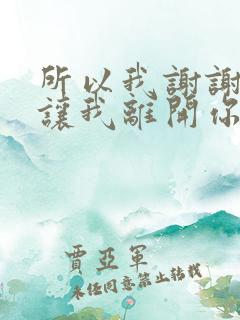 所以我謝謝
讓我離開你
賈亞軍
未經同意禁止轉載